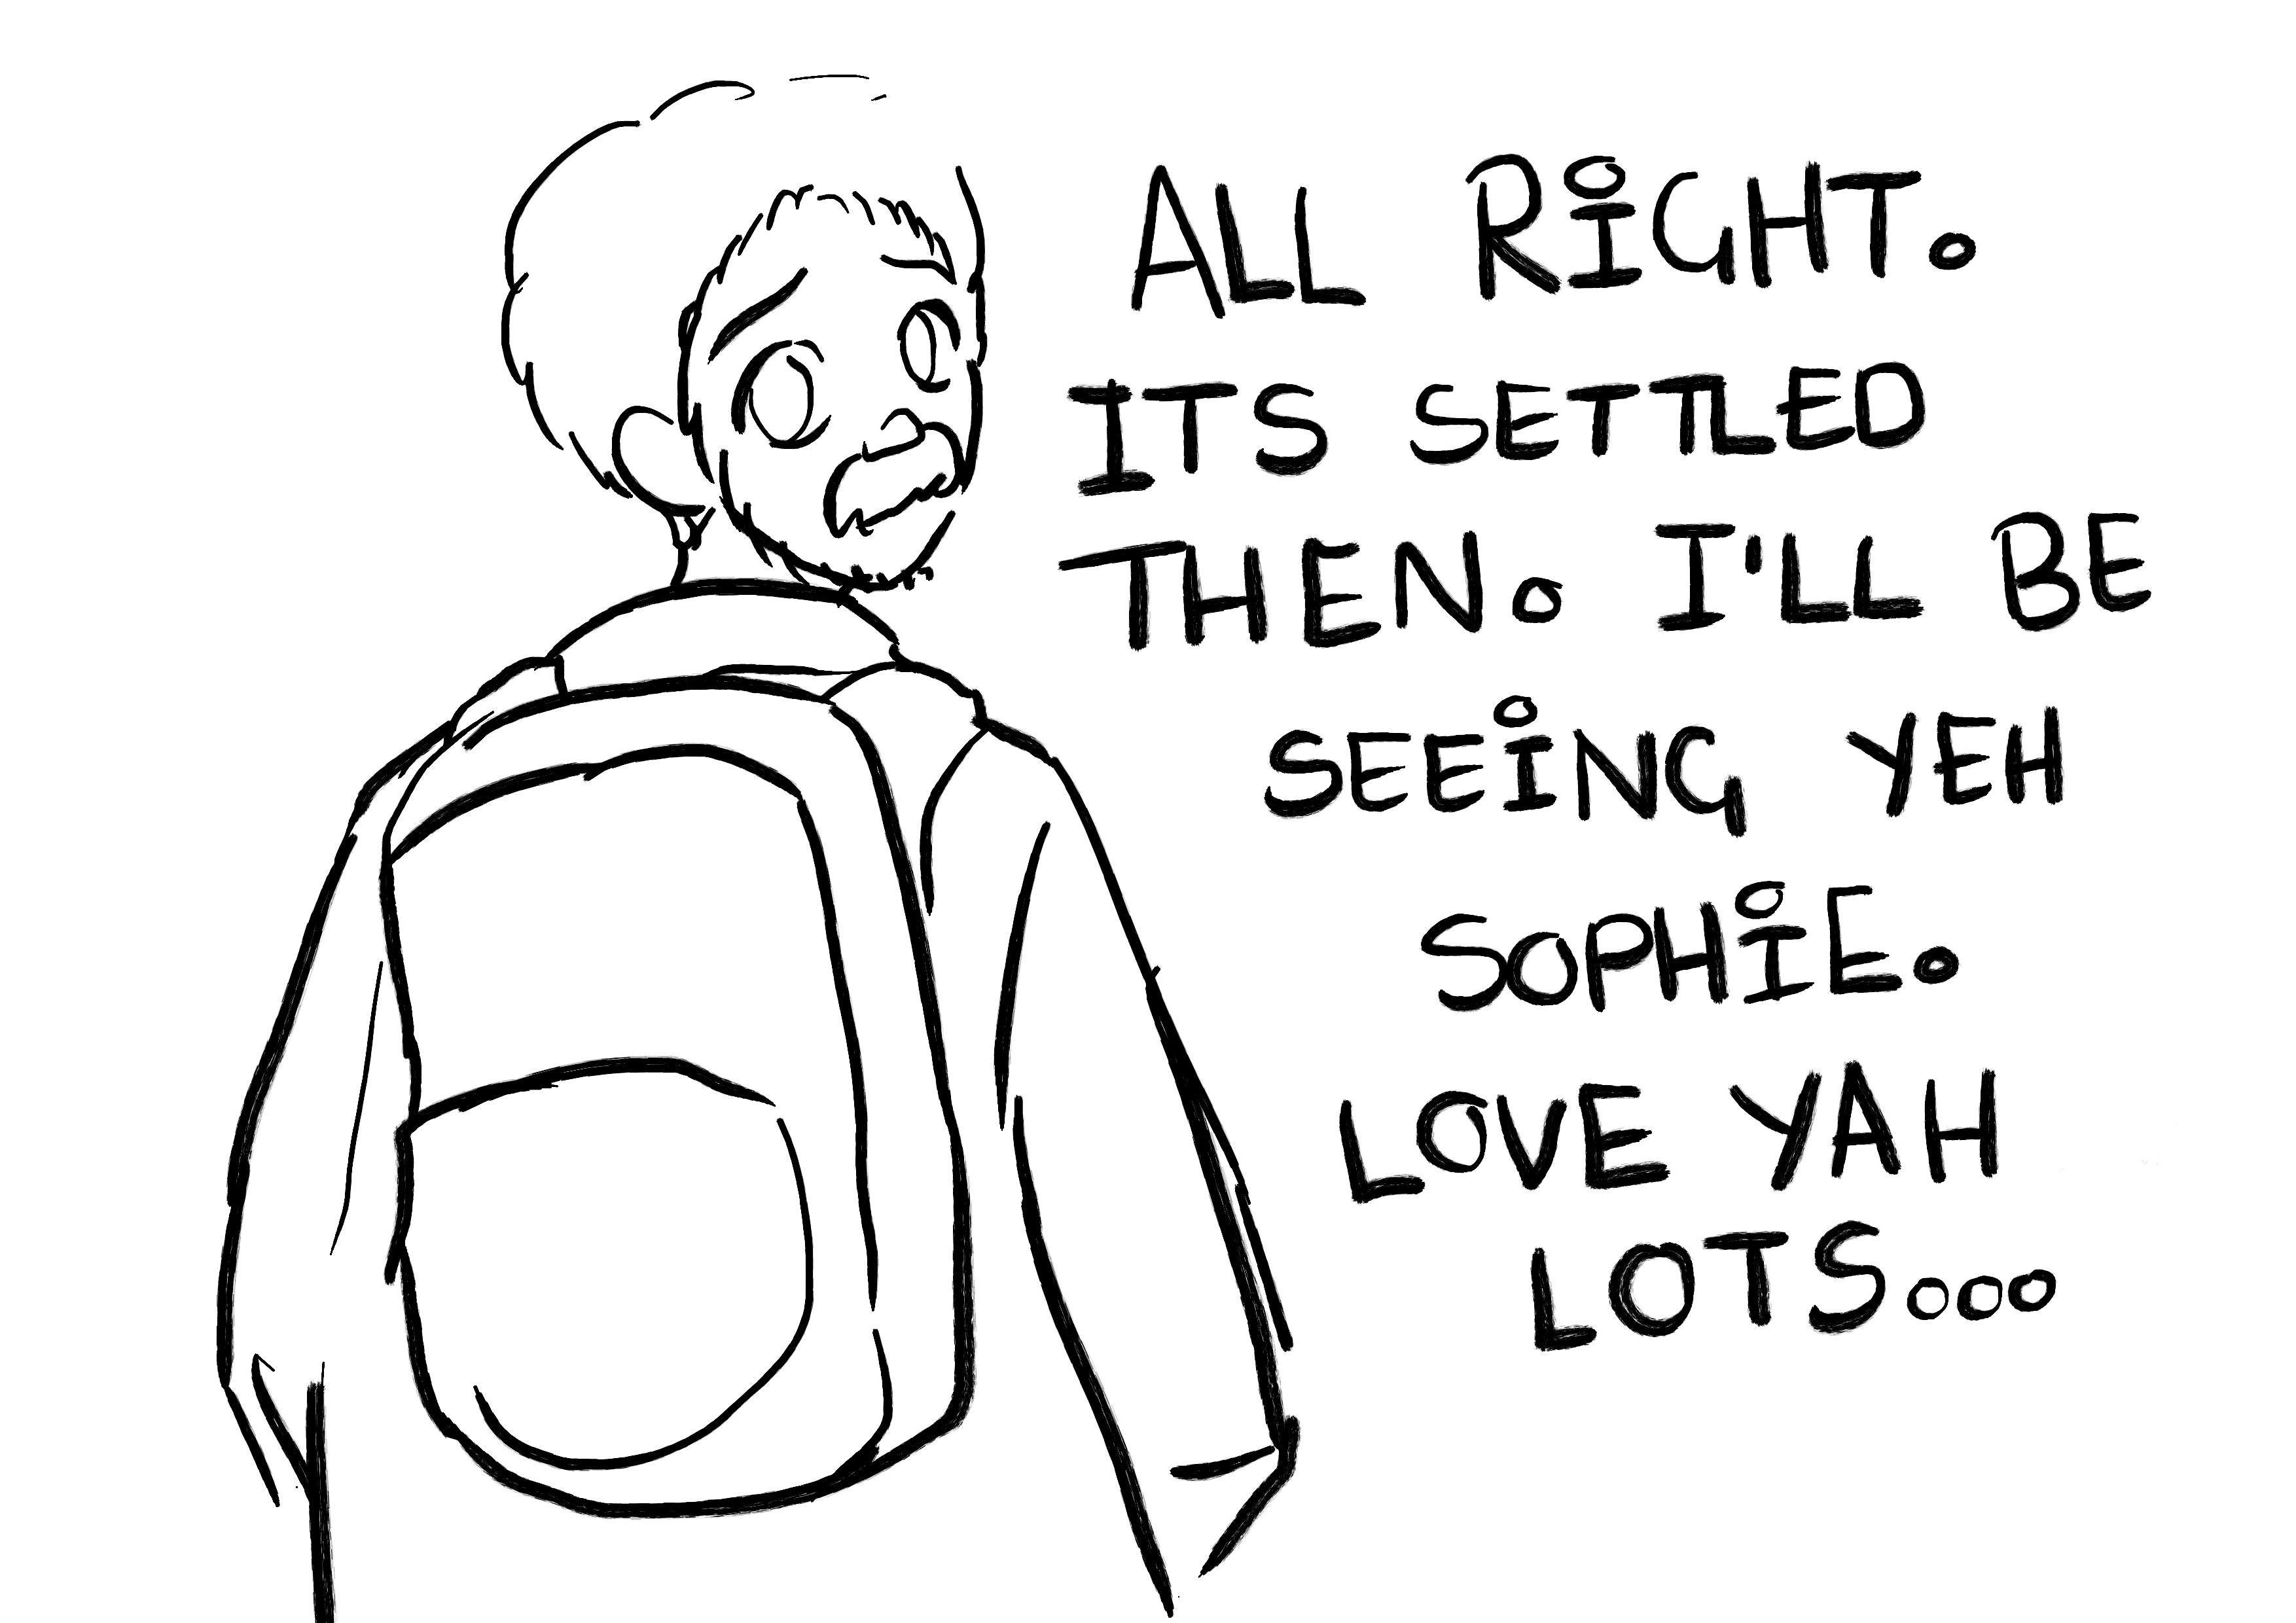 ALL RIGHT.
ITS SETTLED
THEN. I'LL BE
SEEING YEH
SOPHIE.
LOVE YAH
LOTS...